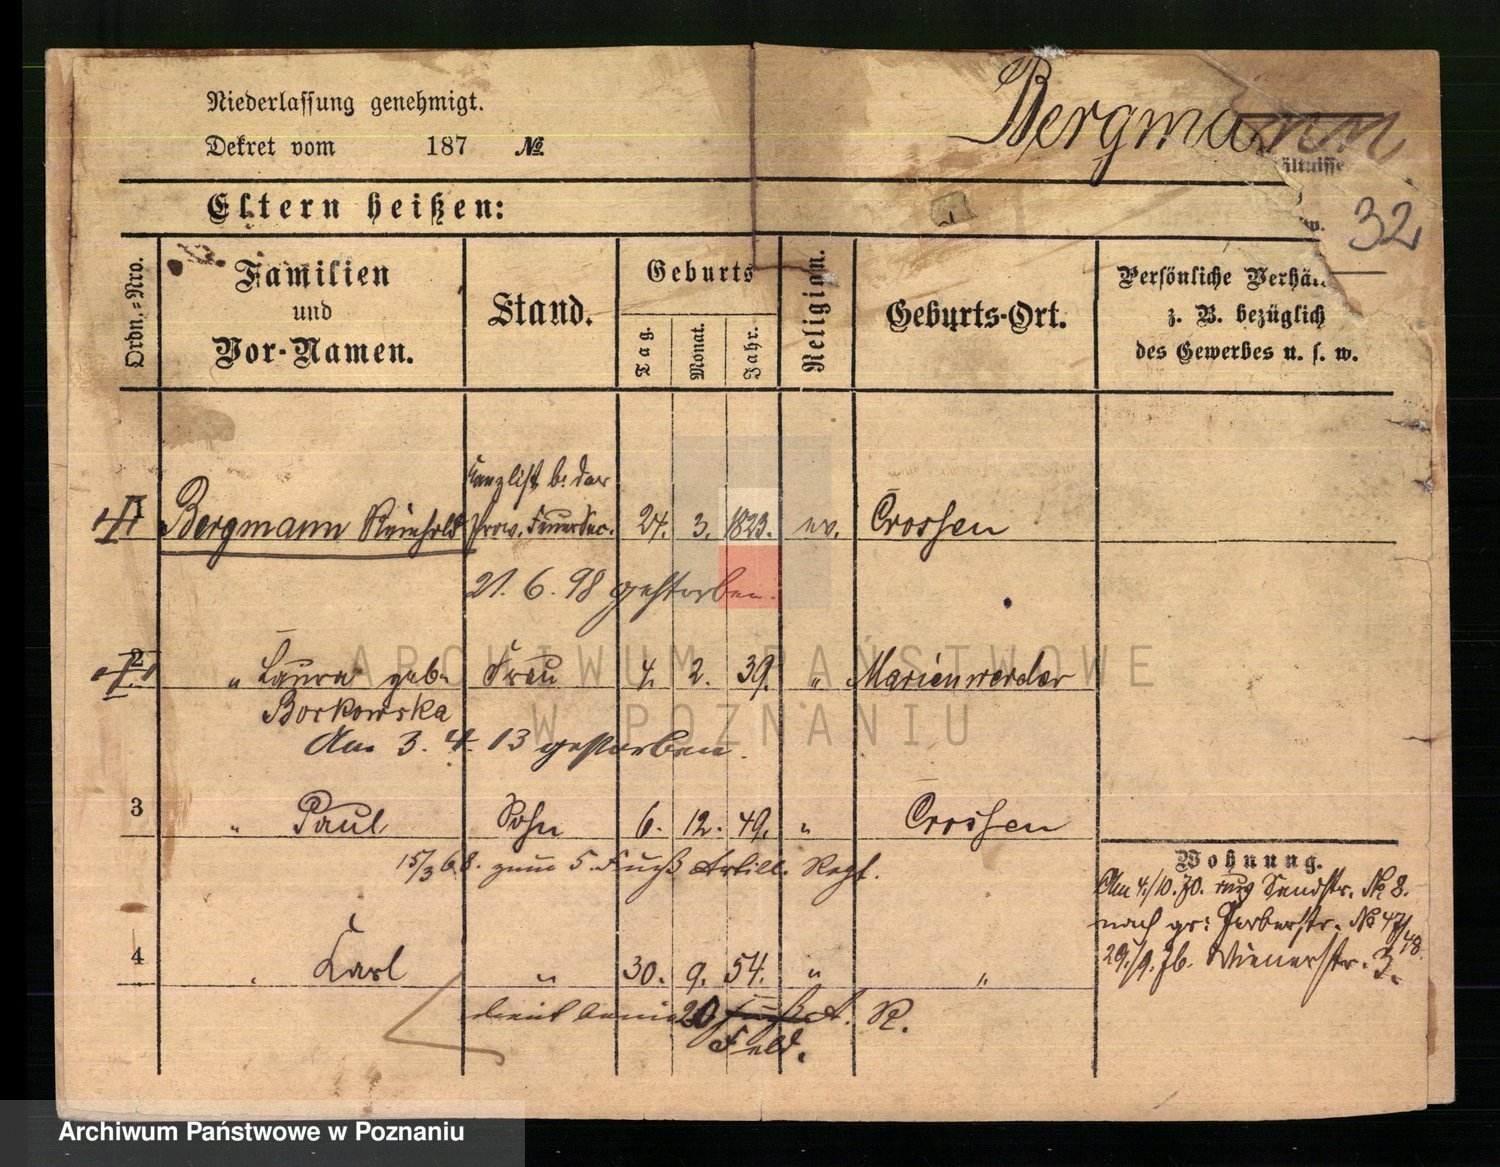 Niederlassung genehmigt.
Dekret vom 187 №
Bergmann
ältnisse
w.
32
Eltern heißen:
Ordn.-Nro.
Familien
und
Vor-Namen.
Stand.
Geburts
Tag.
Monat.
Jahr.
Religion.
Geburts-Ort.
Persönliche Verhä
z. B. bezüglich
des Gewerbes u. s. w.
Kanzlist b. der
1 Bergmann Reinhold Prov. Feuer Soc. 24. 3. 1823. ev. Crossen
21. 6. 98 gestorben.
2 " Laura geb. Frau 4. 2. 39. " Marienwerder
Borkowska
Am 3. 4. 13 gestorben.
3 " Paul Sohn 6. 12. 49. " Crossen
15/3 68. zum 5. Fuß Artill. Regt.
Wohnung.
Am 4./10. 70. Sandstr. № 8.
nach gr: Gerberstr. № 47/48.
29./9. 76. Wienerstr. 3.
4 " Karl " 30. 9. 54. " "
dient beim 20 Fuß A. R.
Feld.
ARCHIWUM PAŃSTWOWE
W POZNANIU
Archiwum Państwowe w Poznaniu